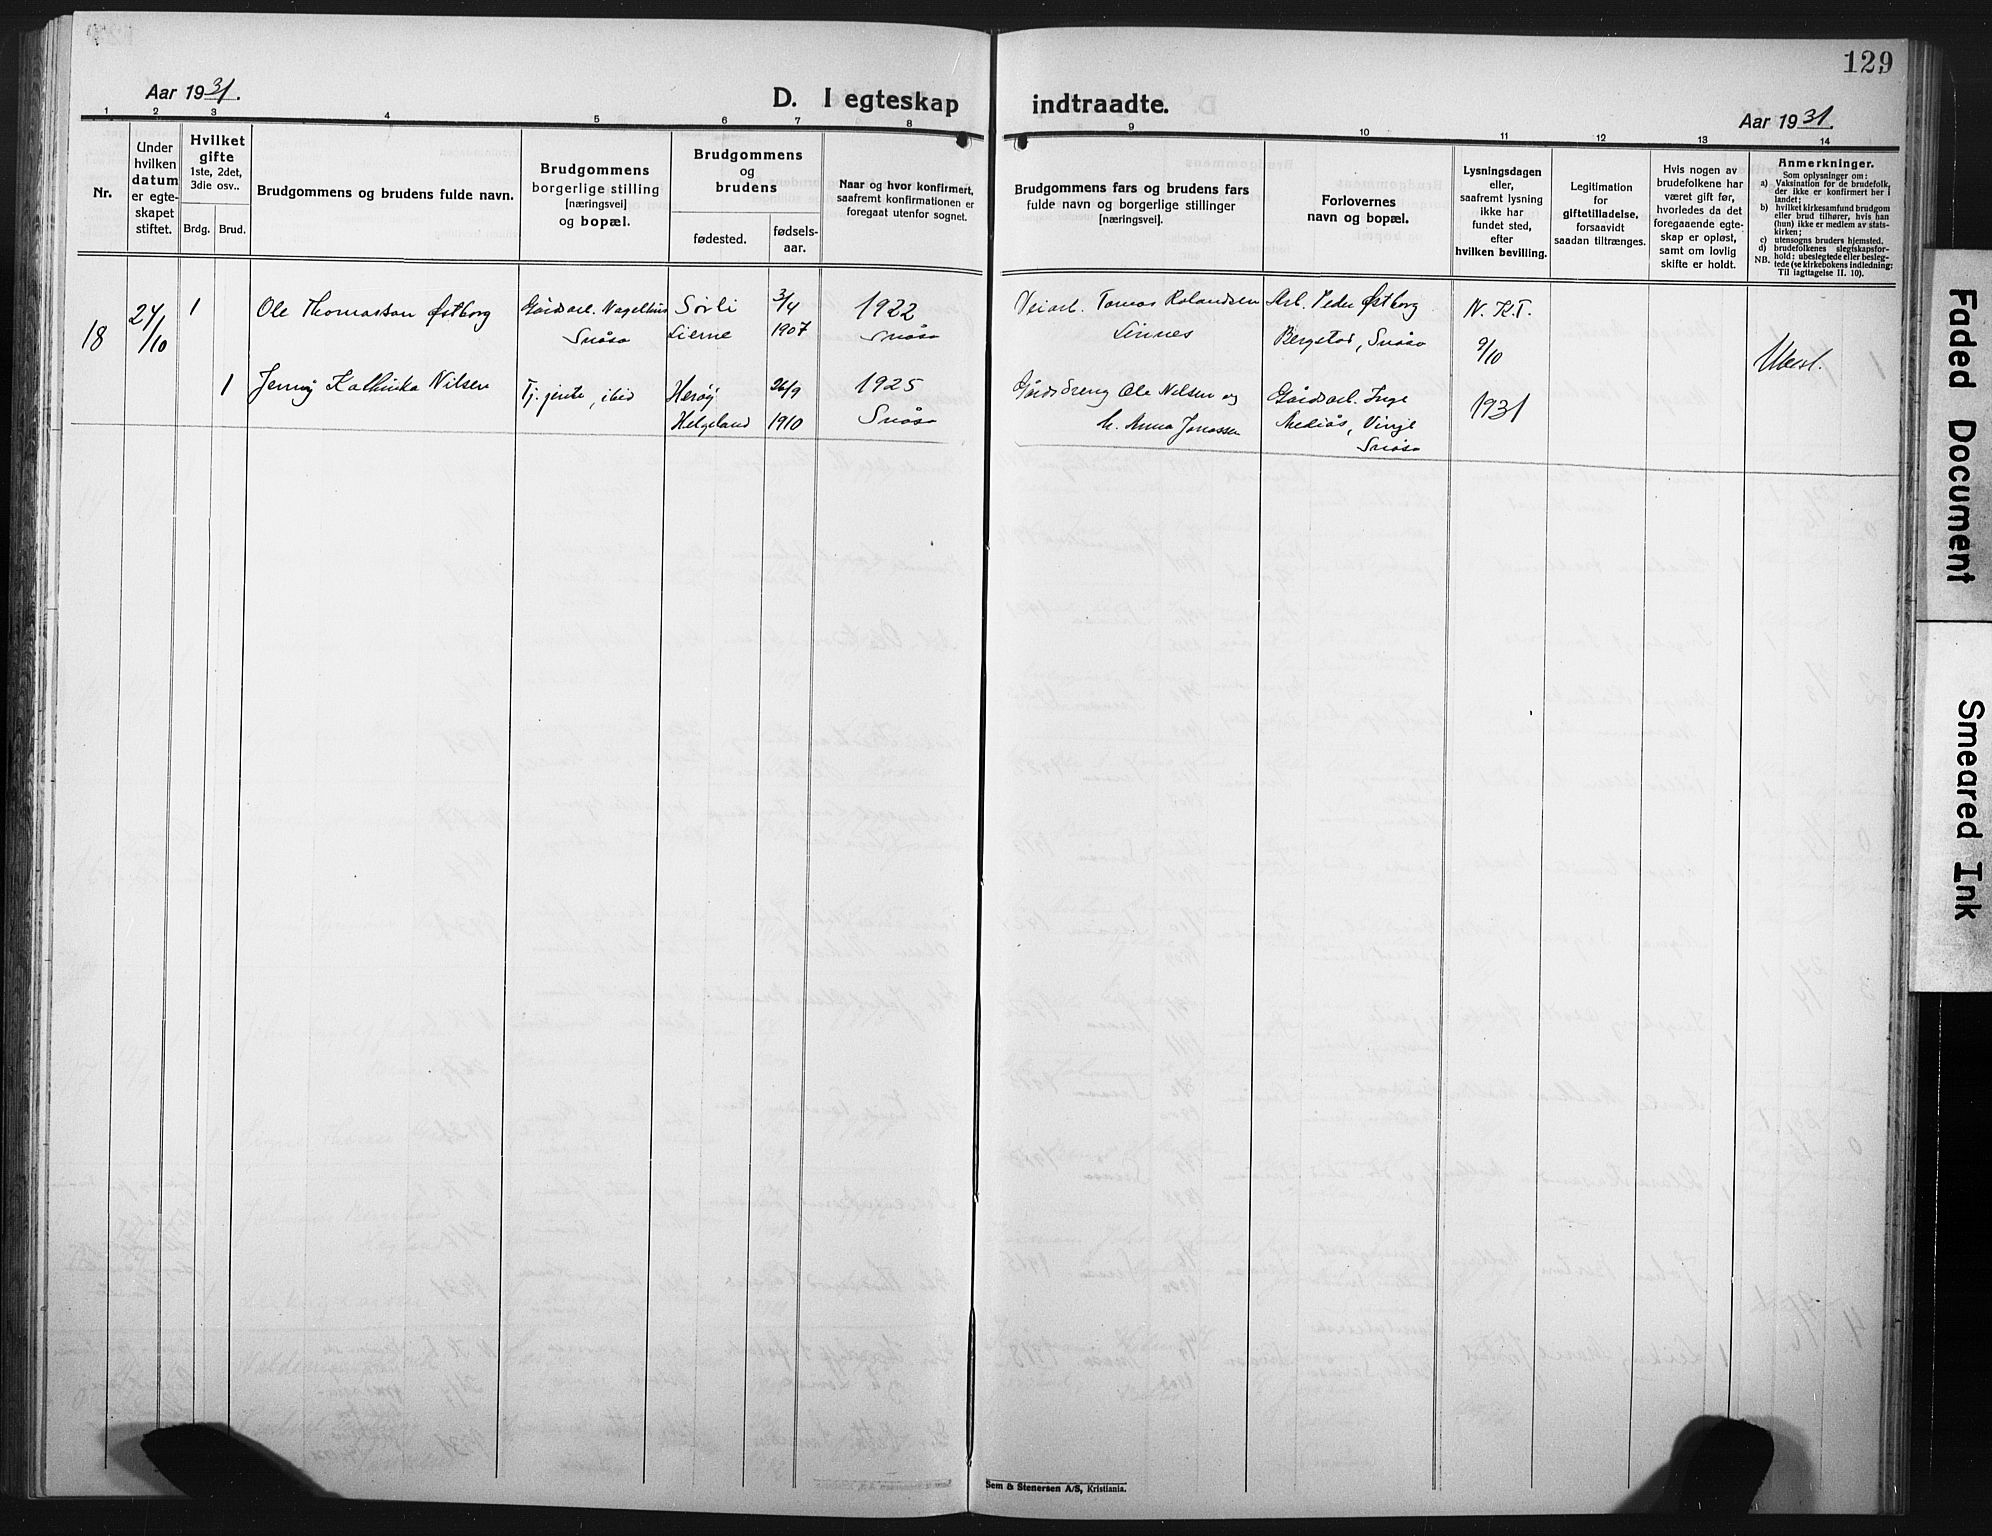 129
Aar 1931.
D. I egteskap indtraadte.
Aar 1931.
1 2 3 4 5 6 7 8 9 10 11 12 13 14
Nr.
Under
hvilken
datum
er egte-
skapet
stiftet.
Hvilket
gifte
1ste, 2det,
3die osv..
Brdg. Brud.
Brudgommens og brudens fulde navn.
Brudgommens
borgerlige stilling
[næringsvei]
og bopæl.
Brudgommens
og
brudens
fødested.
fødsels-
aar.
Naar og hvor konfirmert,
saafremt konfirmationen er
foregaat utenfor sognet.
Brudgommens fars og brudens fars
fulde navn og borgerlige stillinger
[næringsvei].
Forlovernes
navn og bopæl.
Lysningsdagen
eller,
saafremt lysning
ikke har
fundet sted,
efter
hvilken bevilling.
Legitimation
for
giftetilladelse,
forsaavidt
saadan tiltrænges.
Hvis nogen av
brudefolkene har
været gift før,
hvorledes da det
foregaaende egte-
skap er opløst,
samt om lovlig
skifte er holdt.
Anmerkninger.
Som oplysninger om:
a) Vaksination for de brudefolk,
der ikke er konfirmert her i
landet;
b) hvilket kirkesamfund brudgom
eller brud tilhører, hvis han
(hun) ikke er medlem av stats-
kirken;
c) utensogns bruders hjemsted.
d) brudefolkenes slegtskapsfor-
hold: ubeslegtede eller besleg-
NB. tede (se kirkebokens indledning:
Til iagttagelse II. 10).
18
24/10
1
Ole Thomassen Østborg
Gårdsarb.
Snåsa
Sørli
Lierne
3/4
1907
1922
Snåsa
Veiarb. Tomas Rolandsen
Linnes
Arb. Peder Østborg
Bergstad, Snåsa
N. K.T.
9/10
1931
Ubesl.
1
Jenny Kathinka Nilsen
Tj. jente, ibid
Herøy
Helgeland
26/9
1910
1925
Snåsa
Gårdsdreng Ole Nilsen og
h. Anna Jonassen
Gårdsarb. Inge
Mediås, Vinje
Snåsa
Sem & Stenersen A/S, Kristiania.
Faded Document
Smeared Ink